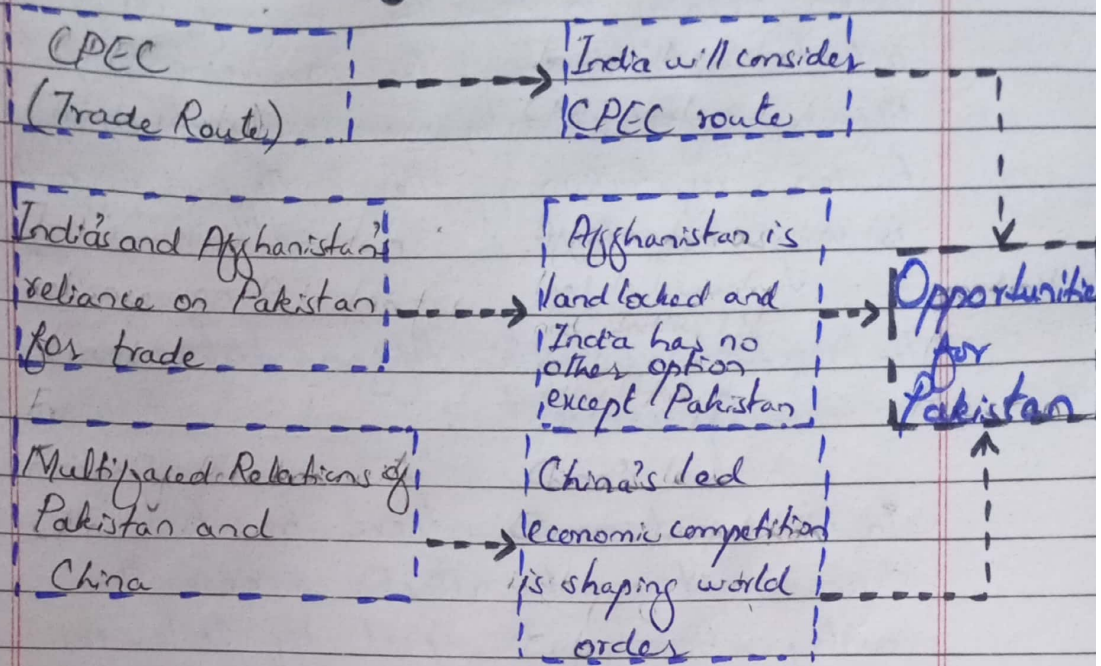 CPEC
(Trade Route)
India will consider
CPEC route
India's and Afghanistan's
reliance on Pakistan
for trade
Afghanistan is
landlocked and
India has no
other option
except Pakistan
Opportunities
for
Pakistan
Multifaced Relations of
Pakistan and
China
China's led
economic competition
is shaping world
order